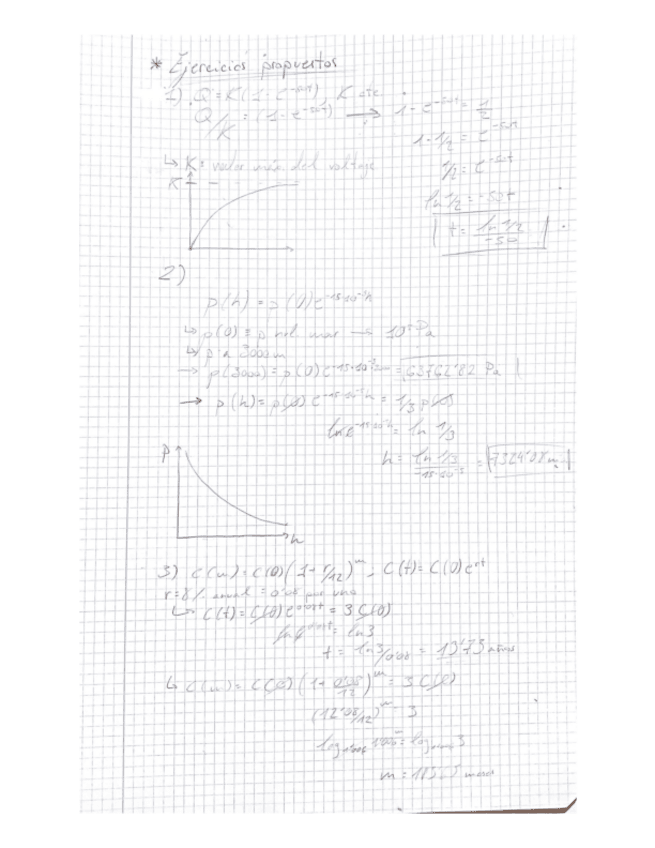 * Ejercicios propuestos
1) Q = K(1 - e^-50t), K cte
Q/K = (1 - e^-50t) → 1 - e^-50t = 1/2
1 - 1/2 = e^-50t
↳ K = valor máx del voltage
1/2 = e^-50t
K
ln 1/2 = -50t
t = ln 1/2 / -50
2)
p(h) = p(0) e^-15·10^-5h
↳ p(0) = p nivel mar → 10^5 Pa
↳ p a 3000m
→ p(3000) = p(0) e = 63762'82 Pa
→ p(h) = p(0) e^-15·10^-5h = 1/3 p(0)
ln e^-15·10^-5h = ln 1/3
P
h = ln 1/3 / -15·10^-5 = 7324'08 m
h
3) C(m) = C(0)(1 + r/12)^m, C(t) = C(0) e^rt
r = 8% anual = 0'08 por uno
↳ C(t) = C(0) e^0'08t = 3 C(0)
ln e^0'08t = ln 3
t = ln 3/0'08 = 13'73 años
↳ C(m) = C(0) (1 + 0'08/12)^m = 3 C(0)
(12'08/12)^m = 3
log = log 3
m =